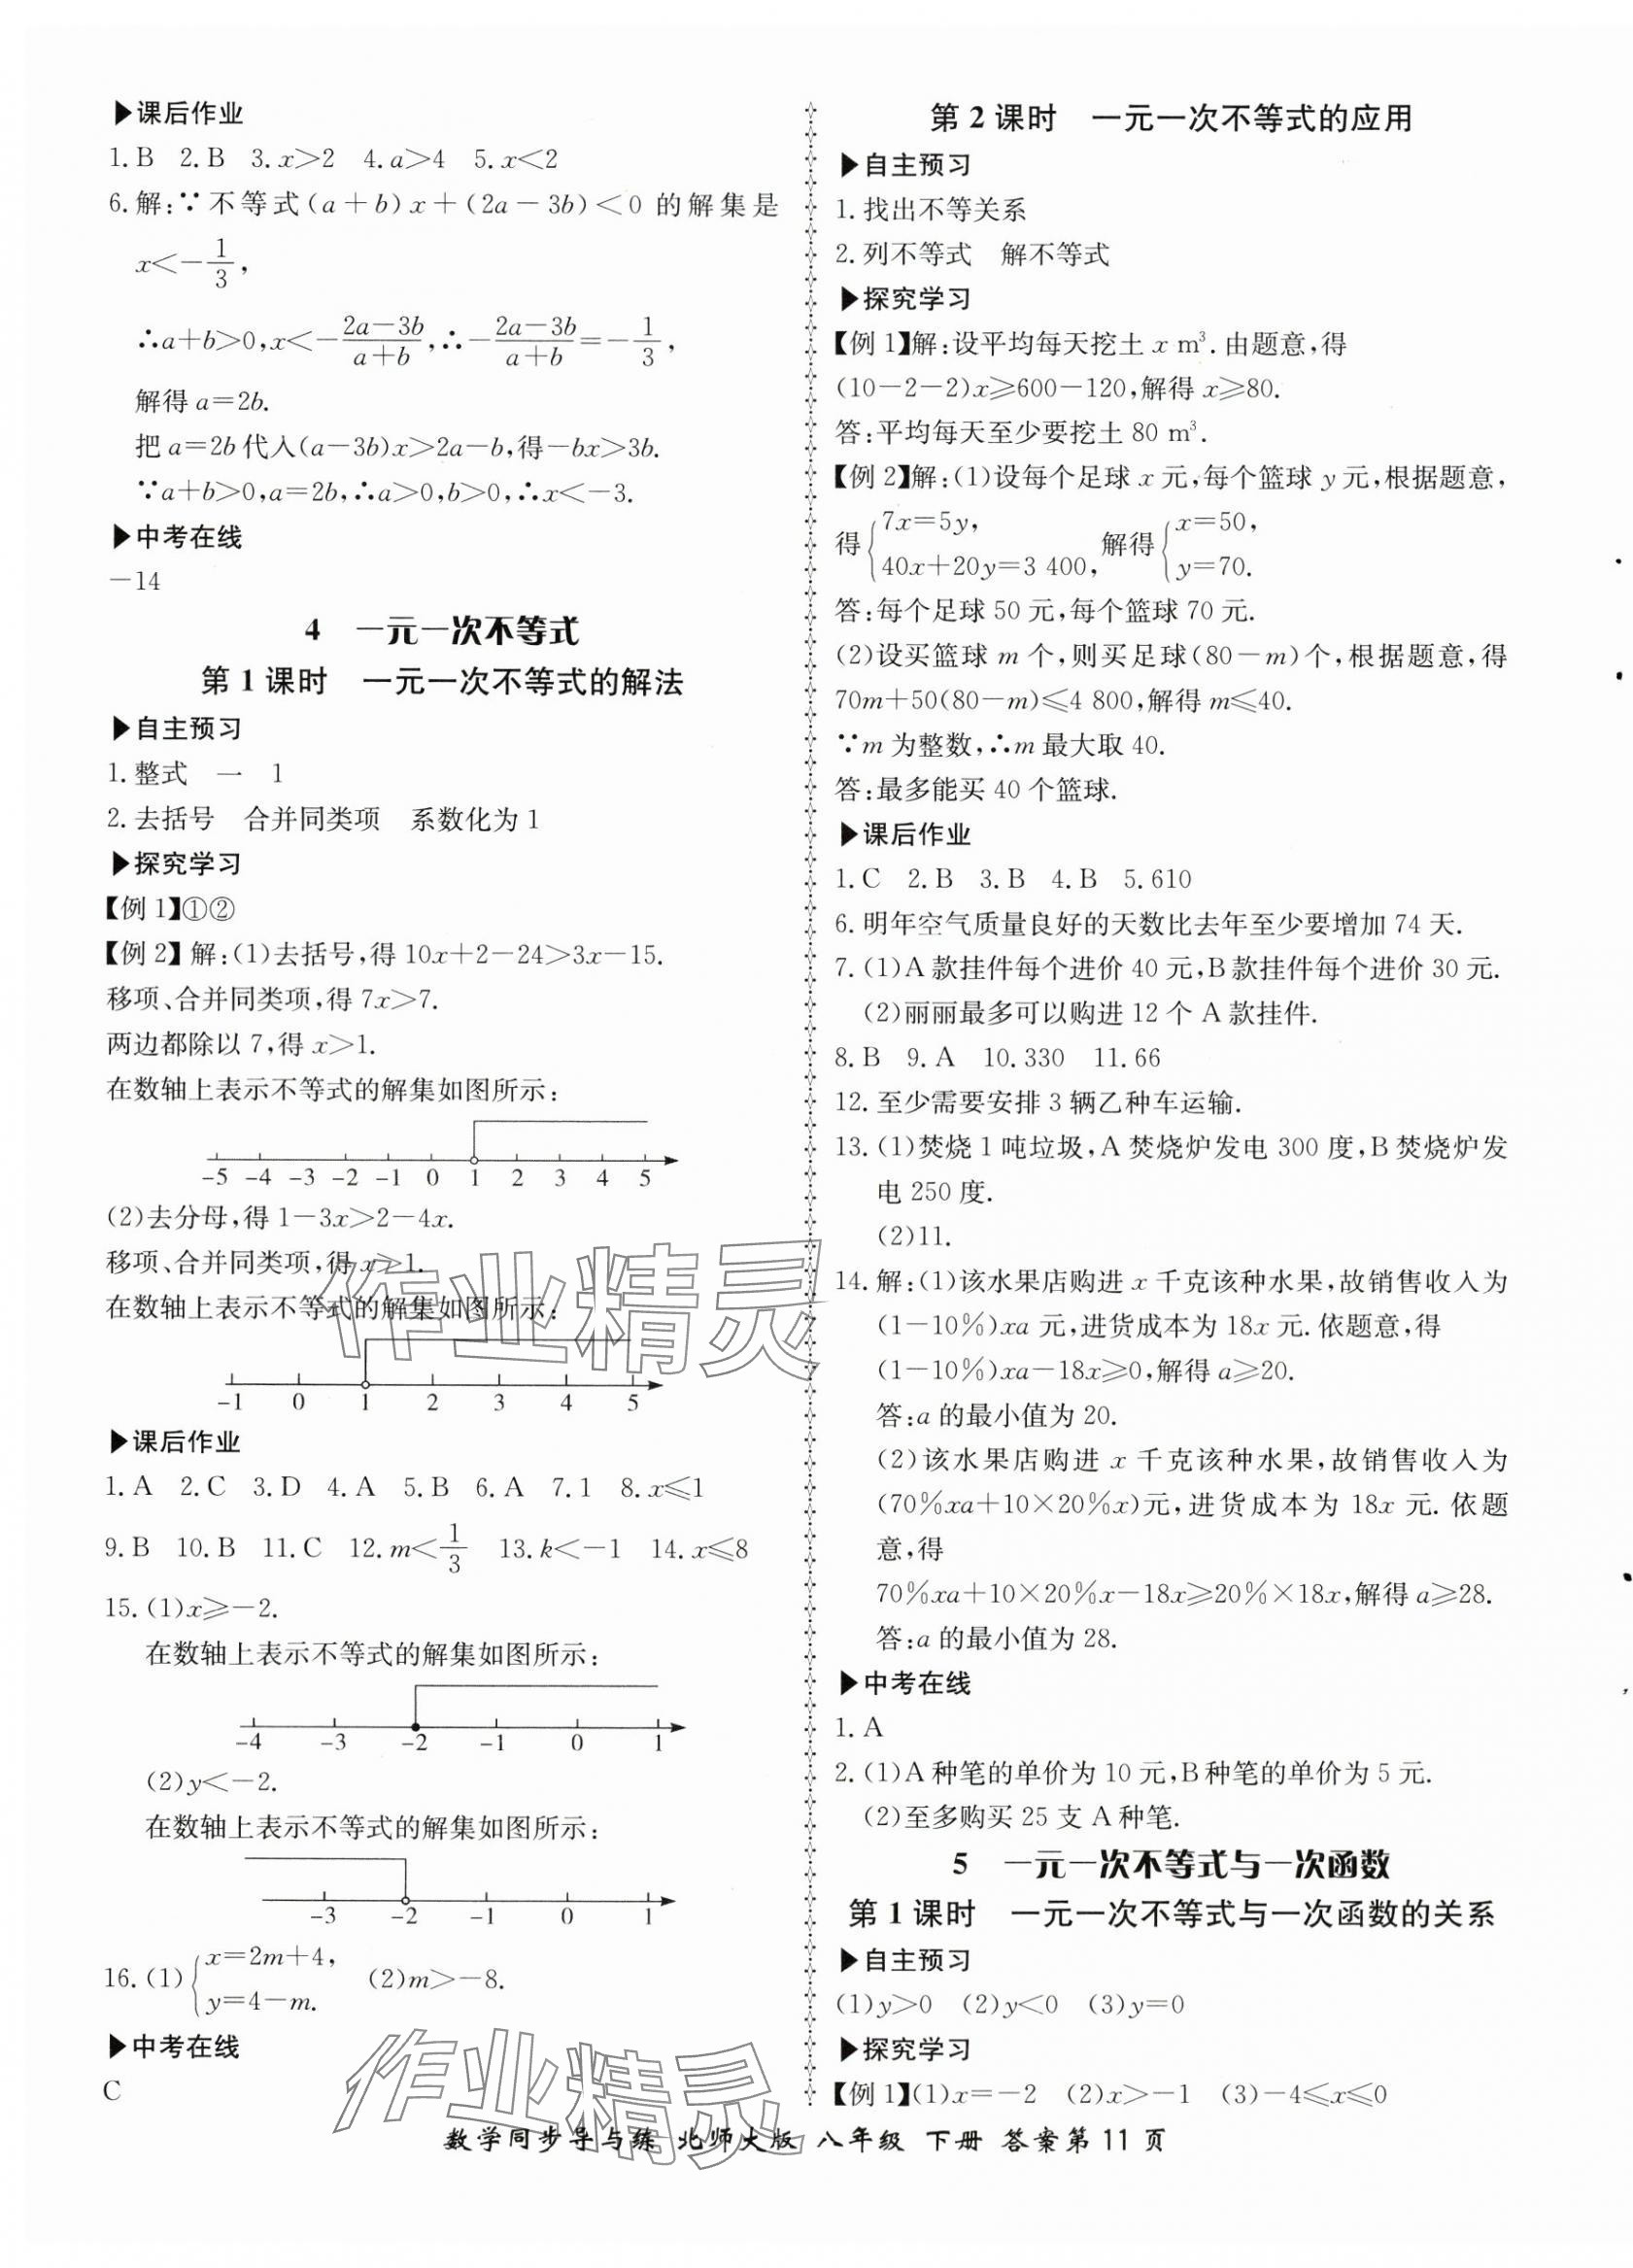 ▶课后作业
1.B 2.B 3.x>2 4.a>4 5.x<2
6.解:∵不等式(a+b)x+(2a-3b)<0的解集是
x<-1/3,
∴a+b>0,x<-(2a-3b)/(a+b),∴-(2a-3b)/(a+b)=-1/3,
解得a=2b.
把a=2b代入(a-3b)x>2a-b,得-bx>3b.
∵a+b>0,a=2b,∴a>0,b>0,∴x<-3.
▶中考在线
-14
4 一元一次不等式
第1课时 一元一次不等式的解法
▶自主预习
1.整式 一 1
2.去括号 合并同类项 系数化为1
▶探究学习
【例1】①②
【例2】解:(1)去括号,得10x+2-24>3x-15.
移项、合并同类项,得7x>7.
两边都除以7,得x>1.
在数轴上表示不等式的解集如图所示:
-5 -4 -3 -2 -1 0 1 2 3 4 5
(2)去分母,得1-3x>2-4x.
移项、合并同类项,得x>1.
在数轴上表示不等式的解集如图所示:
-1 0 1 2 3 4 5
▶课后作业
1.A 2.C 3.D 4.A 5.B 6.A 7.1 8.x≤1
9.B 10.B 11.C 12.m<1/3 13.k<-1 14.x≤8
15.(1)x≥-2.
在数轴上表示不等式的解集如图所示:
-4 -3 -2 -1 0 1
(2)y<-2.
在数轴上表示不等式的解集如图所示:
-3 -2 -1 0 1
16.(1){x=2m+4, y=4-m. (2)m>-8.
▶中考在线
C
第2课时 一元一次不等式的应用
▶自主预习
1.找出不等关系
2.列不等式 解不等式
▶探究学习
【例1】解:设平均每天挖土x m³.由题意,得
(10-2-2)x≥600-120,解得x≥80.
答:平均每天至少要挖土80 m³.
【例2】解:(1)设每个足球x元,每个篮球y元,根据题意,
得{7x=5y, 40x+20y=3 400, 解得{x=50, y=70.
答:每个足球50元,每个篮球70元.
(2)设买篮球m个,则买足球(80-m)个,根据题意,得
70m+50(80-m)≤4 800,解得m≤40.
∵m为整数,∴m最大取40.
答:最多能买40个篮球.
▶课后作业
1.C 2.B 3.B 4.B 5.610
6.明年空气质量良好的天数比去年至少要增加74天.
7.(1)A款挂件每个进价40元,B款挂件每个进价30元.
(2)丽丽最多可以购进12个A款挂件.
8.B 9.A 10.330 11.66
12.至少需要安排3辆乙种车运输.
13.(1)焚烧1吨垃圾,A焚烧炉发电300度,B焚烧炉发
电250度.
(2)11.
14.解:(1)该水果店购进x千克该种水果,故销售收入为
(1-10%)xa元,进货成本为18x元.依题意,得
(1-10%)xa-18x≥0,解得a≥20.
答:a的最小值为20.
(2)该水果店购进x千克该种水果,故销售收入为
(70%xa+10×20%x)元,进货成本为18x元.依题
意,得
70%xa+10×20%x-18x≥20%×18x,解得a≥28.
答:a的最小值为28.
▶中考在线
1.A
2.(1)A种笔的单价为10元,B种笔的单价为5元.
(2)至多购买25支A种笔.
5 一元一次不等式与一次函数
第1课时 一元一次不等式与一次函数的关系
▶自主预习
(1)y>0 (2)y<0 (3)y=0
▶探究学习
【例1】(1)x=-2 (2)x>-1 (3)-4≤x≤0
作业精灵
作业精灵
数学同步导与练 北师大版 八年级 下册 答案第11页